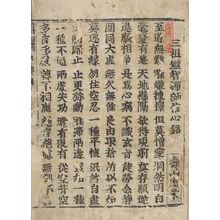 三祖鑑智禪師信心銘
至道無難唯嫌揀擇但莫憎愛洞然明白
毫釐有差天地懸隔欲得現前莫存順逆
違順相爭是為心病不識玄旨徒勞念靜
圓同大虛無欠無餘良由取捨所以不如
莫逐有緣勿住空忍一種平懷泯然自盡
止動歸止止更彌動唯滯兩邊寧知一種
一種不通兩處失功遣有沒有從空背空
多言多慮轉不相應絕言絕慮無處不通